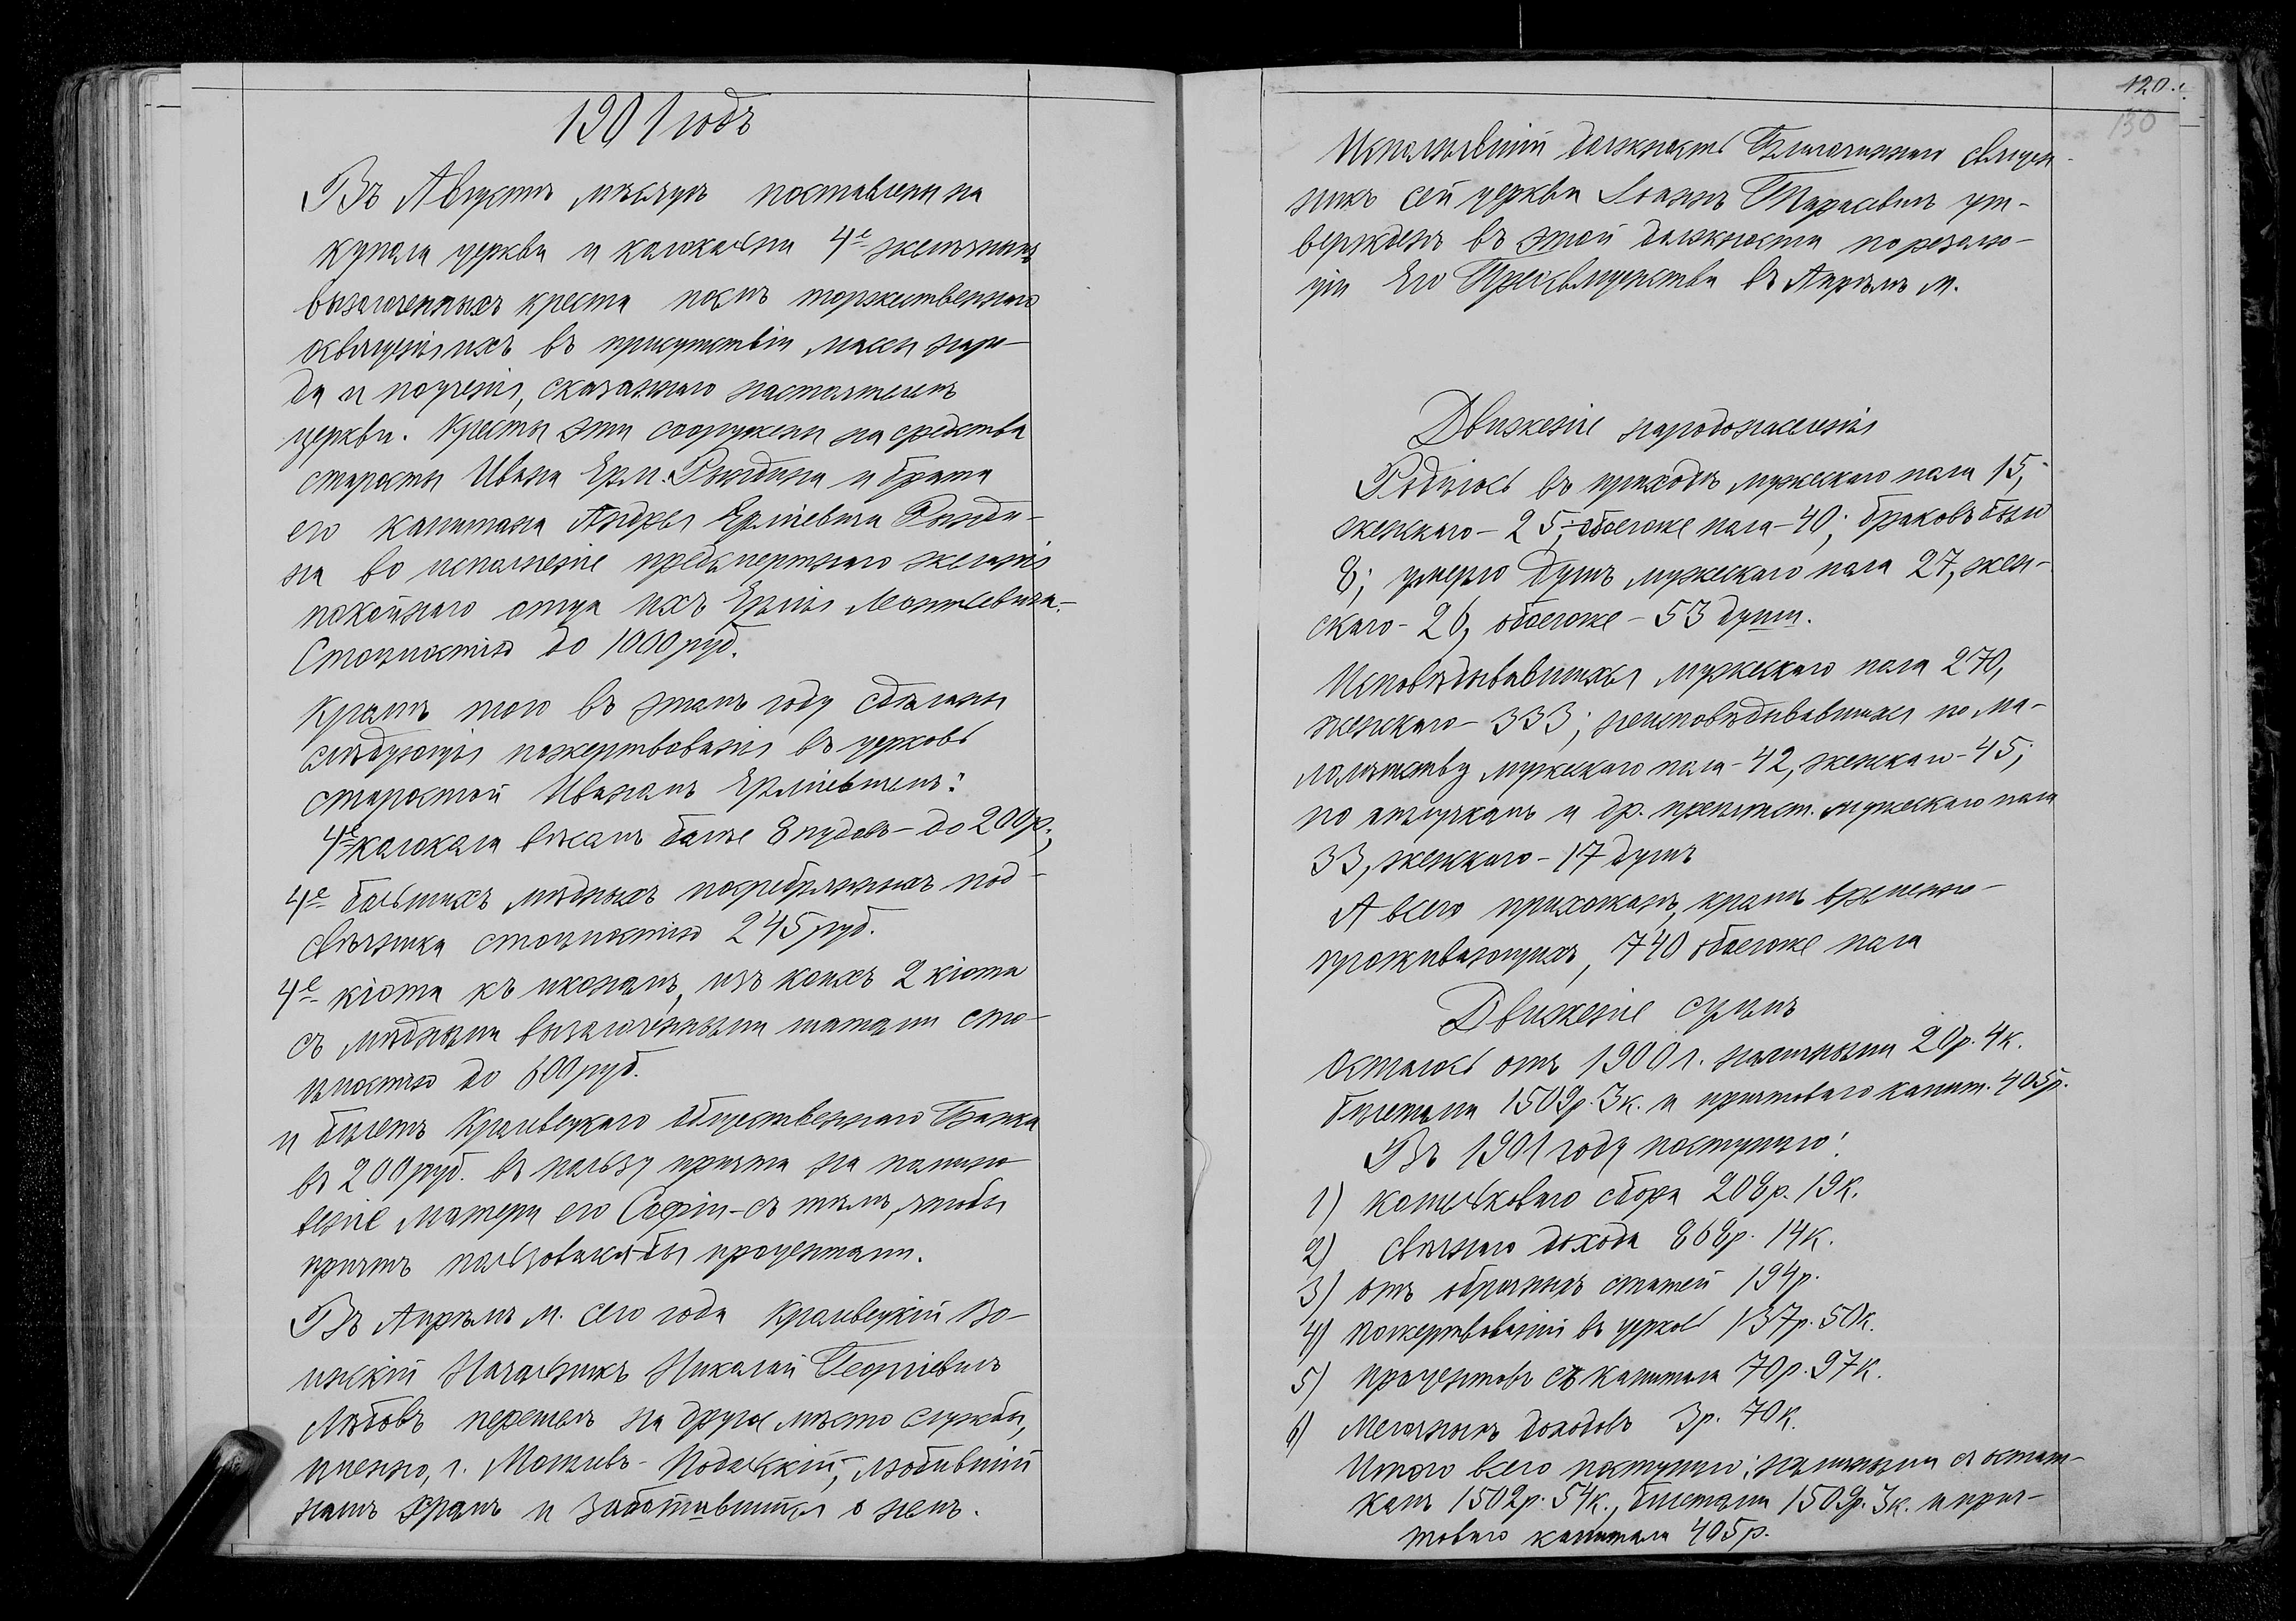 1901 годъ
Въ Августѣ мѣсяцѣ поставлены на
купола церкви и колокольни 4е желѣзныхъ
вызолоченныхъ креста послѣ торжественнаго
освященія ихъ въ присутствіи массы наро-
да и поученія, сказаннаго настоятелемъ
церкви. Кресты эти сооружены на средства
старосты Ивана Ерм. Рындина и брата
его капитана Андрея Ерміевича Рынди-
на во исполненіе предсмертнаго желанія
покойнаго отца ихъ Ермія Леонтьевича.-
Стоимостію до 1000 руб.
Кромѣ того въ этомъ году сдѣланы
слѣдующія пожертвованія въ церковь
старостой Иваномъ Ерміевичемъ:
4е колокола вѣсомъ болѣе 8 пудовъ - до 200 р.;
4е большихъ мѣдныхъ посребрянныхъ под-
свѣчника стоимостію 245 руб.
4е кіота къ иконамъ, изъ коихъ 2 кіота
съ мѣдными вызолоченными шатами сто-
имостью до 600 руб.
и билетъ Кролевецкаго Общественнаго Банка
въ 200 руб. въ пользу причта на помино-
веніе матери его Софіи - съ тѣмъ, чтобы
причтъ пользовался бы процентами.
Въ Апрѣлѣ м. сего года Кролевецкій Во-
инскій Начальникъ Николай Георгіевичъ
перешелъ на другое мѣсто службы,
именно, г. Могилевъ-Подольскій, любившій
нашъ храмъ и заботившійся о немъ.
120.
130
Исполнявшій должность Благочиннаго священ-
никъ сей церкви Іоаннъ Тарасевичъ ут-
вержденъ въ этой должности по резолю-
ціи Его Преосвященства въ Апрѣлѣ м.
Движеніе народонаселенія
Родилось въ приходѣ мужескаго пола 15,
женскаго - 25; обоегоже пола - 40; браковъ было
8; умерло душъ мужескаго пола 27, жен-
скаго - 26, обоегоже - 53 души.
Исповѣдывавшихся мужескаго пола 270,
женскаго - 333; неисповѣдывавшихся по ма-
лолѣтству мужескаго пола - 42, женскаго - 45;
по отлучкамъ и др. препятст. мужескаго пола
33, женскаго - 17 душъ
А всего прихожанъ, кромѣ временно-
проживающихъ, 740 обоегоже пола
Движеніе суммъ
Осталось отъ 1900 г. наличными 20 р. 4 к.
билетами 1509 р. 3 к. и причтоваго капит. 405 р.
Въ 1901 году поступило:
1) кошельковаго сбора 208 р. 19 к.
2) свѣчнаго дохода 868 р. 14 к.
3) отъ оброчныхъ статей 194 р.
4) пожертвованій въ церковь 137 р. 50 к.
5) процентовъ съ капитала 70 р. 97 к.
6) Мелочныхъ доходовъ 3 р. 70 к.
Итого всего поступило: наличными съ остат-
комъ 1502 р. 54 к., билетами 1509 р. 3 к. и прич-
товаго капитала 405 р.